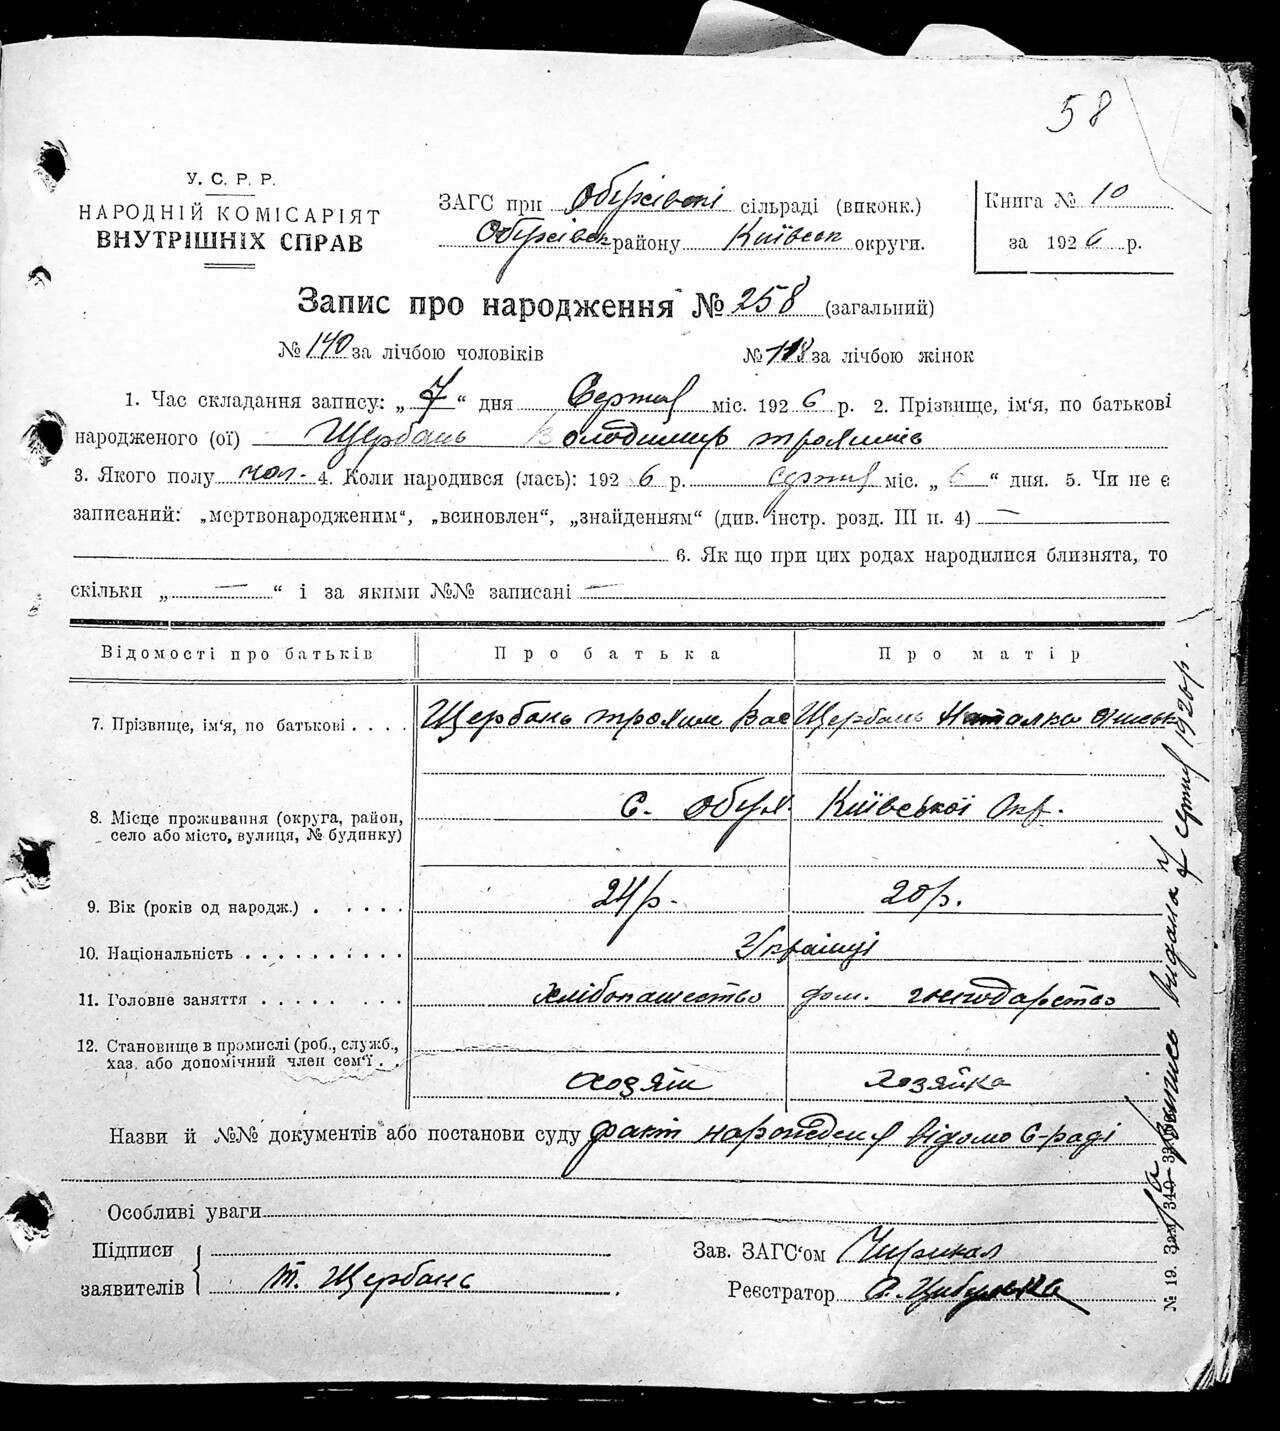 58
У. С. Р. Р.
НАРОДНІЙ КОМІСАРІЯТ
ВНУТРІШНІХ СПРАВ
ЗАГС при сільраді (виконк.)
району Київськ округи.
Книга № 10
за 1926 р.
Запис про народження № 258 (загальний)
№ 140 за лічбою чоловіків № 118 за лічбою жінок
1. Час складання запису: „ 7 “ дня Серпня міс. 1926 р. 2. Прізвище, ім‘я, по батькові
народженого (ої) Щербань Володимир
3. Якого полу чол. 4. Коли народився (лась): 1926 р. серпня міс. „ 6 “ дня. 5. Чи не є
записаний: „мертвонародженим“, „всиновлен“, „знайденням“ (див. інстр. розд. III п. 4) —
6. Як що при цих родах народилися близнята, то
скільки „ — “ і за якими №№ записані —
Відомості про батьків Про батька Про матір
7. Прізвище, ім‘я, по батькові . . . . Щербань Трохим Вас Щербань Наталка
8. Місце проживання (округа, район,
село або місто, вулиця, № будинку)
С. Обух. Київської Окр.
9. Вік (років од народж.) . . . . . 24 р. 20 р.
10. Національність . . . . . . . . . . Українці
11. Головне заняття . . . . . . . . Хлібопашество дом. господарство
12. Становище в промислі (роб., служб.,
хаз. або допомічний член сем‘ї . .
хозяїн хозяйка
Назви й №№ документів або постанови суду факт народження відомо С-раді
Особливі уваги
Підписи
заявителів
Т. Щербань
Зав. ЗАГС‘ом
Реєстратор Цибулька
№ 19. Зам. 349
випись видана 7 серпня 1926 р.